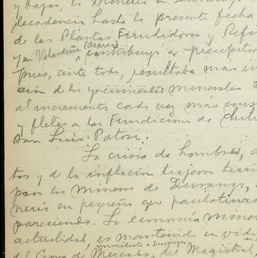 y bajas, la Minería en
decadencia hasta la presente fecha
de las Plantas Fundidoras y Refi
y en Velardeña (Asarco)
contribuyó a precipitar
pues, ante todo, resultaba mas in
ción de los yacimientos minerales
al incremento cada vez más
y fletes a las Fundiciones de Chihu
San Luis Potosí.
La crisis de hombres,
tos y de la inflación trajeron terri
para las Minas de Durango,
nería en pequeño que paulatinam
pareciendo. La economía minera
actualidad, es mantenida en vid
del Cerro de Mercado, del Magistral